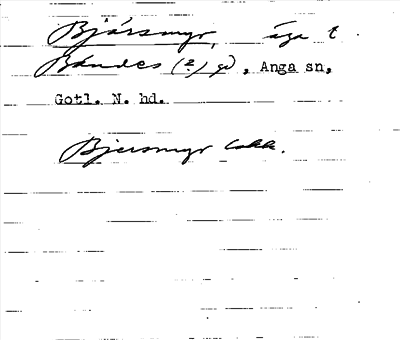 Bjärsmyr, äga t
Bändes (2) gd, Anga sn,
Gotl. N. hd.
Bjersmyr lokk.